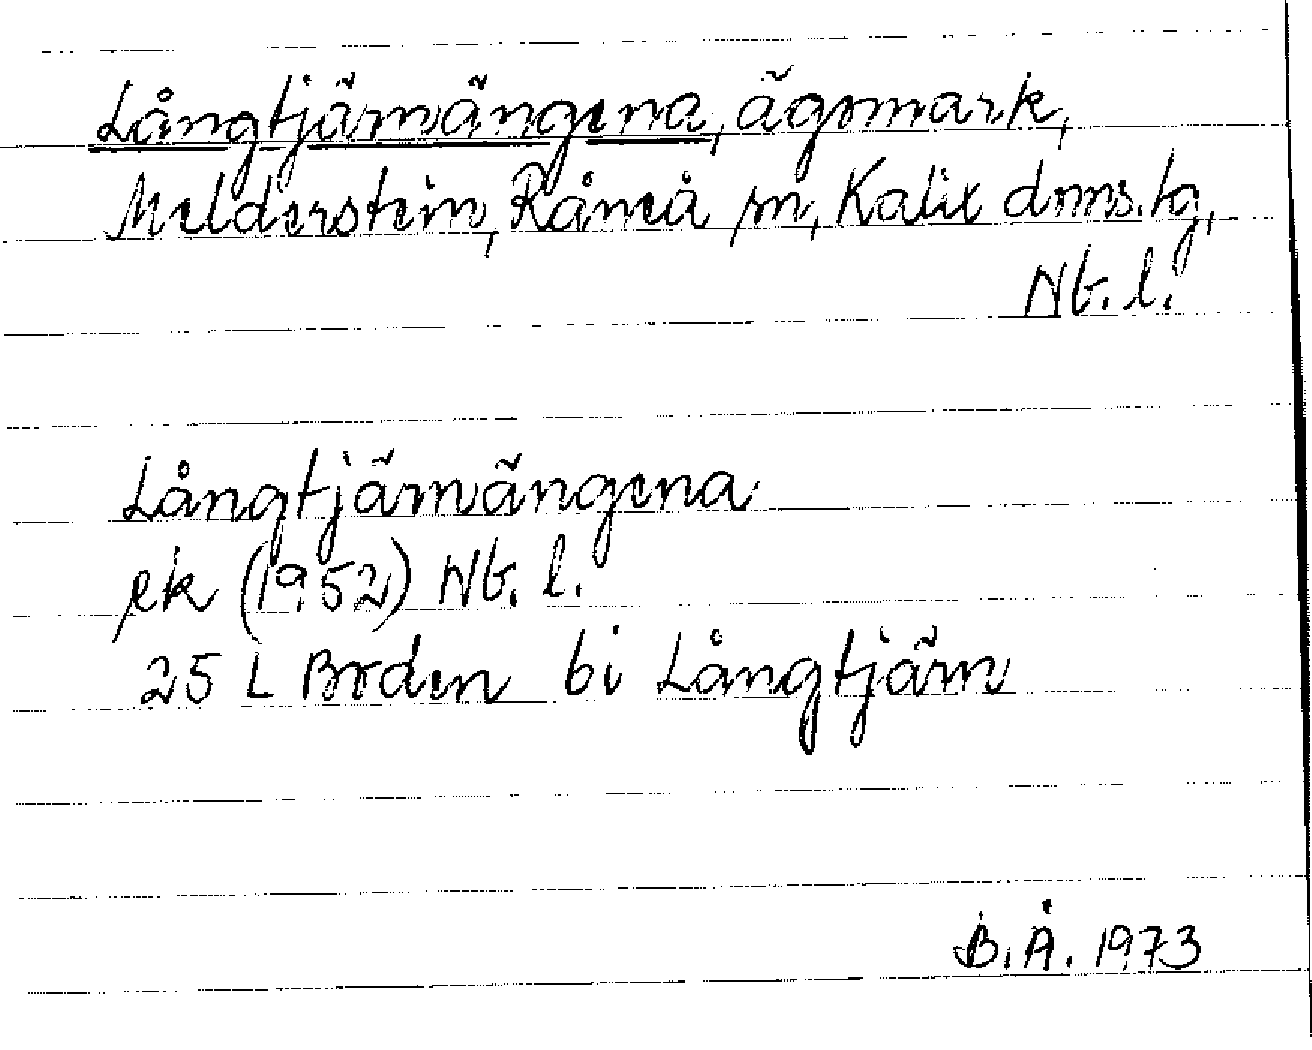 Långtjärnängena, ägomark,
Melderstein, Råneå sn, Kalix doms.lg,
Nb. l.
Långtjärnängena
ek (1952) Nb. l.
25 L Boden bi Långtjärn
B.Å. 1973